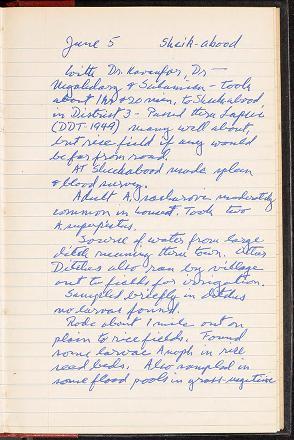 June 5 Sheik-abood
With Dr. Dr-
& Sulamein - took
about 1 hr & 20 min. to Sheikabood
in District 3 - Passed thru
(DDT-1949) many well about,
but rice field if any would
be far from road.
At Sheikabood made spleen
& blood survey.
Adult A. sacharovi moderately
common in houses. Took two
A. superpictus.
Source of water from large
ditch running thru town. Other
Ditches also ran by village
out to fields for irrigation.
Sampled briefly in ditches
no larvae found.
Rode about 1 mile out on
plain to rice fields. Found
some larvae Anoph. in rice
seed beds. Also sampled in
some flood pools in grass-vegetative